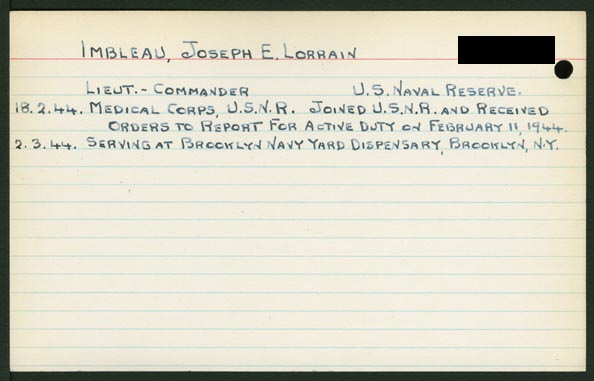 IMBLEAU, JOSEPH E. LORRAIN
LIEUT.-COMMANDER U.S. NAVAL RESERVE.
18.2.44. MEDICAL CORPS, U.S.N.R. JOINED U.S.N.R. AND RECEIVED
ORDERS TO REPORT FOR ACTIVE DUTY ON FEBRUARY 11, 1944.
2.3.44. SERVING AT BROOKLYN NAVY YARD DISPENSARY, BROOKLYN, N.Y.